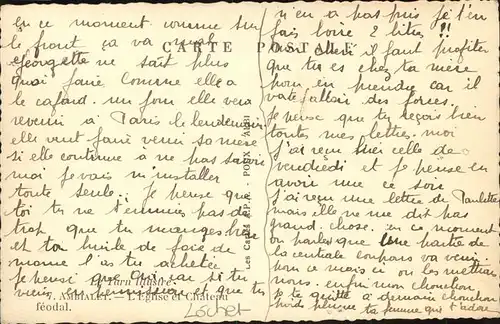 en ce moment comme sur
le front ça va mal
georgette ne sait plus
quoi faire comme elle a
le cafard. un jour elle veut
revenir à Paris le lendemain
elle veut faire venir sa mère
si elle continue a ne pas savoir
moi je vais m installer
toute seule. Je pense que
toi tu ne t'ennuies pas de
trop que tu manges bien
et ta huile de foie de
morue l'as tu acheté
je pense que oui car si tu
viens en permission et que tu
n'en a pas pris je t'en
fais boire 2 litres !!
allez il faut profiter
que tu es chez ta mère
pour en prendre car il
vate falloir des forces.
Je pense que tu reçois bien
toutes mes lettres. moi
j'ai reçu hier celle de
vendredi et je pense en
avoir une ce soir
j'ai reçu une lettre de Paulette
mais elle ne me dit pas
grand chose. en ce moment
on parles que une partie de
la centrale
ce mois ci ou les
nous. enfin mon chouchou
je te quitte à demain chouchou
ta femme que t'adore
CARTE POSTALE
Les Cartes A.P.A. - POUX, ALBI
Le Tarn Illustré
7. AMBIALET. — L'Eglise et Château
féodal.